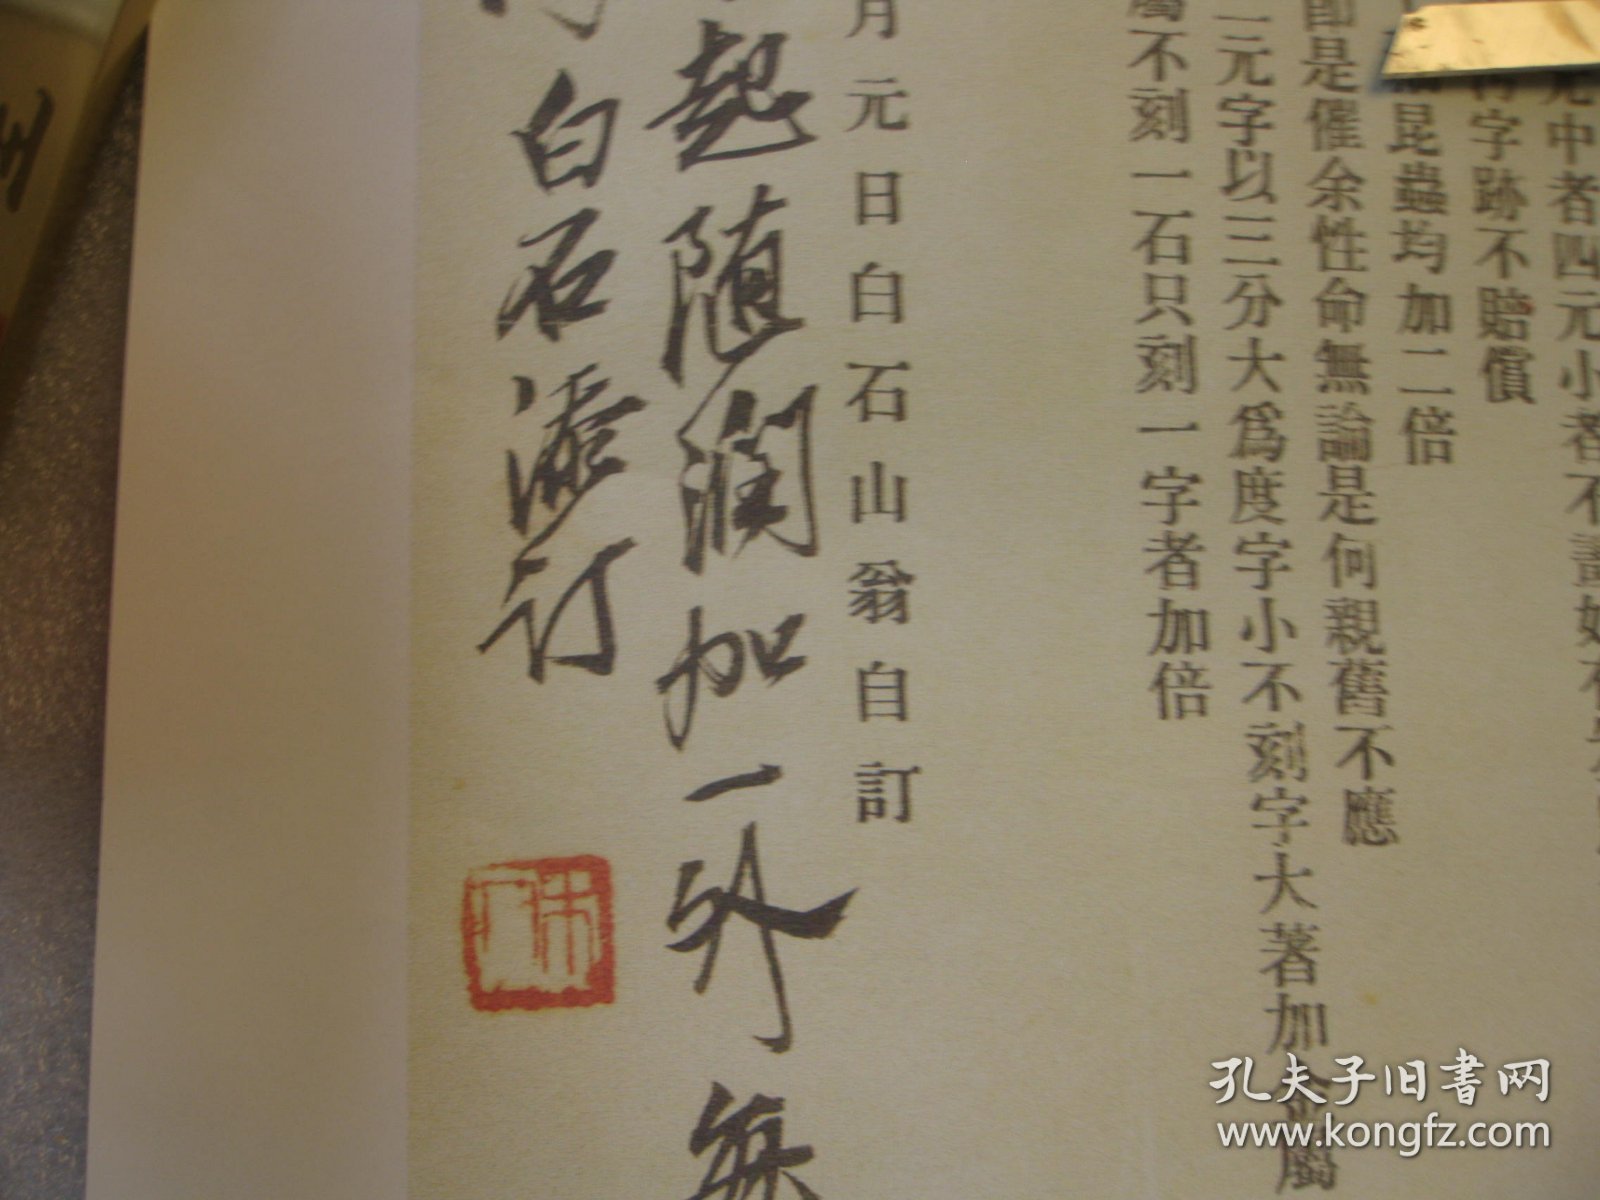 元中者四元小者不
字跡不賠償
昆蟲均加二倍
即是催余性命無論是何親舊不應
二元字以三分大爲度字小不刻字大著加
屬不刻一石只刻一字者加倍
月元日白石山翁自訂
起随润加一外無
白石添订
孔夫子旧書网
www.kongfz.com